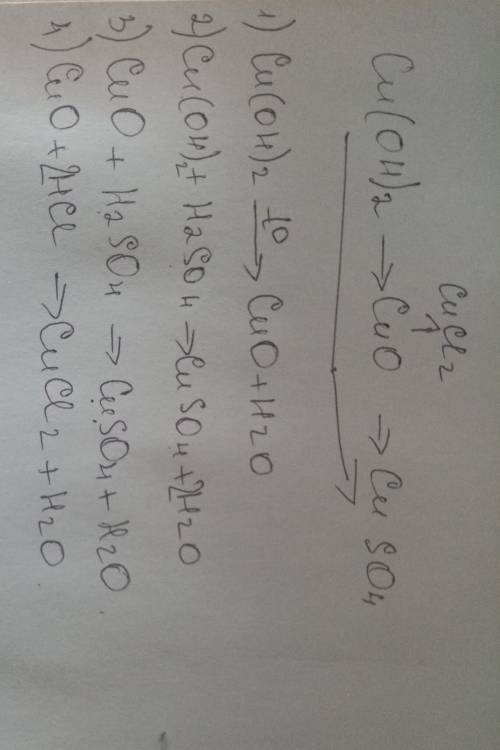 CuCl2
↑
Cu(OH)2 → CuO → CuSO4
1) Cu(OH)2 t° → CuO + H2O
2) Cu(OH)2 + H2SO4 → CuSO4 + 2H2O
3) CuO + H2SO4 → CuSO4 + H2O
4) CuO + 2HCl → CuCl2 + H2O